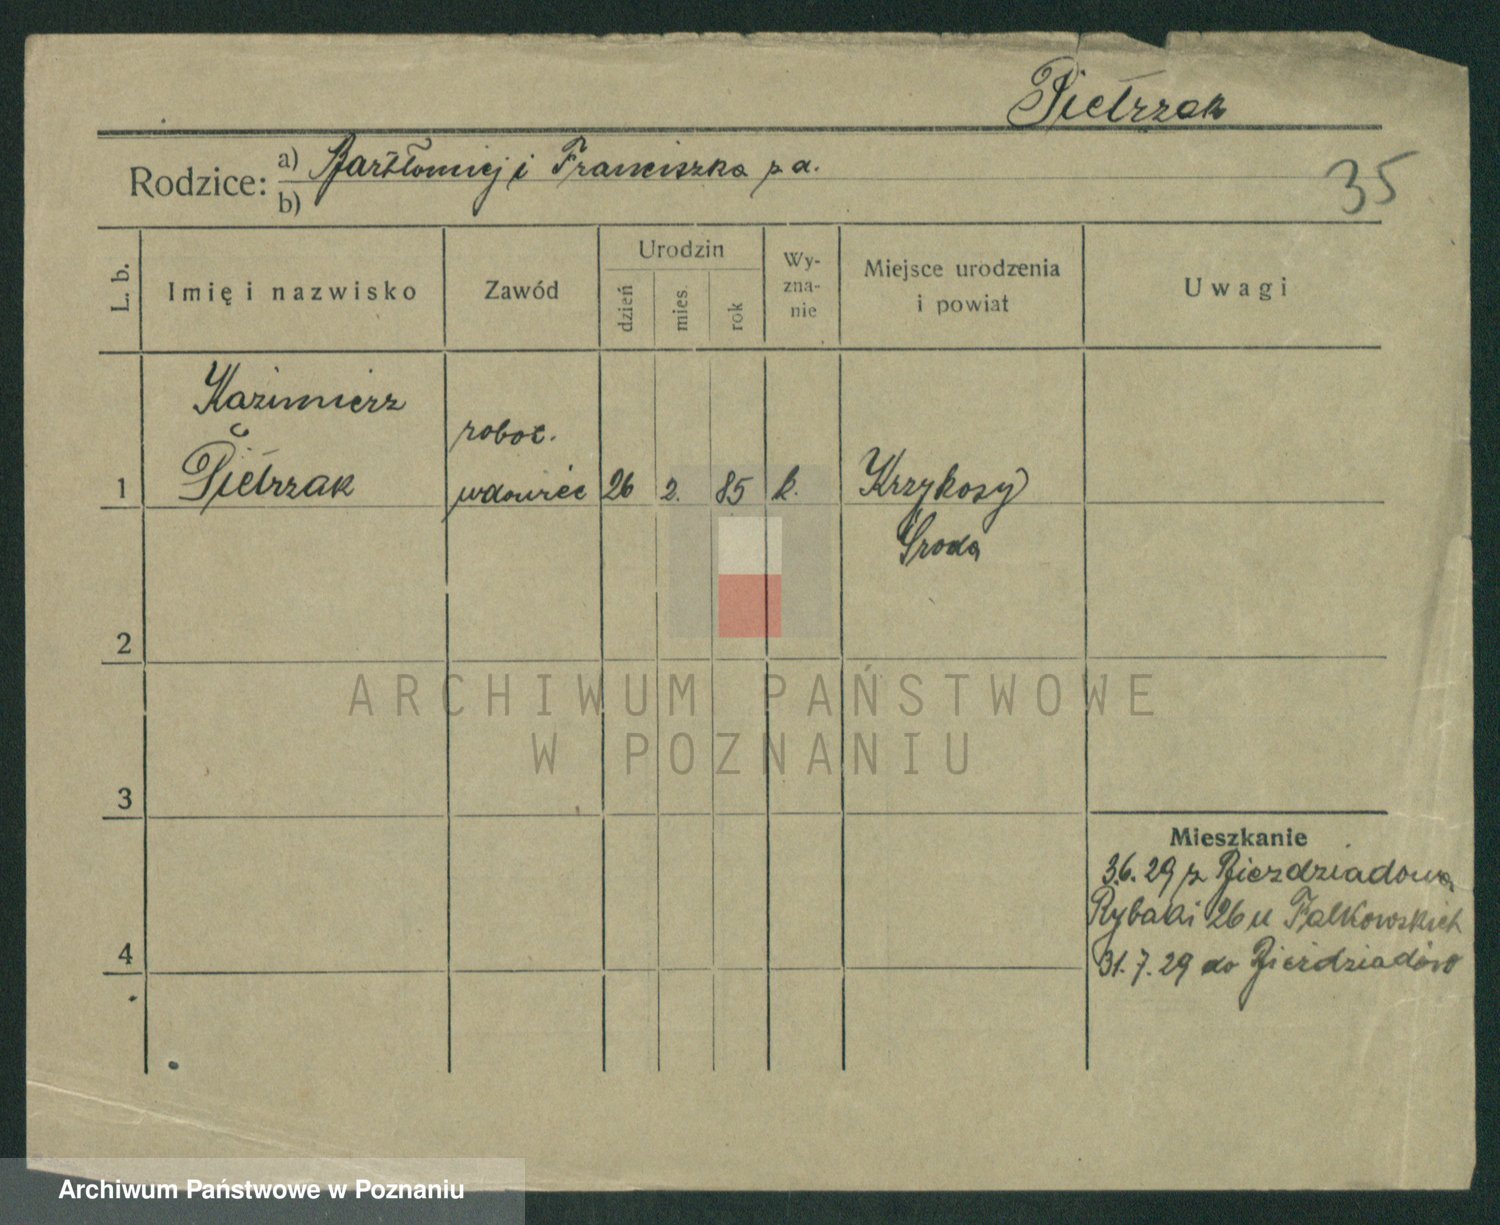 Pietrzak
Rodzice: a) Bartłomiej i Franciszka
b)
35
L. b.
Imię i nazwisko
Zawód
Urodzin
dzień
mies.
rok
Wy-
zna-
nie
Miejsce urodzenia
i powiat
Uwagi
Kazimierz
Pietrzak
roboc.
wdowiec
1
26
2.
85
k.
Krzykosy
Środa
2
ARCHIWUM PAŃSTWOWE
W POZNANIU
3
Mieszkanie
3.6. 29 z Bierdziadowa
Rybaki 26 u Falkowskich
4
31. 7. 29 do Bierdziadów
Archiwum Państwowe w Poznaniu